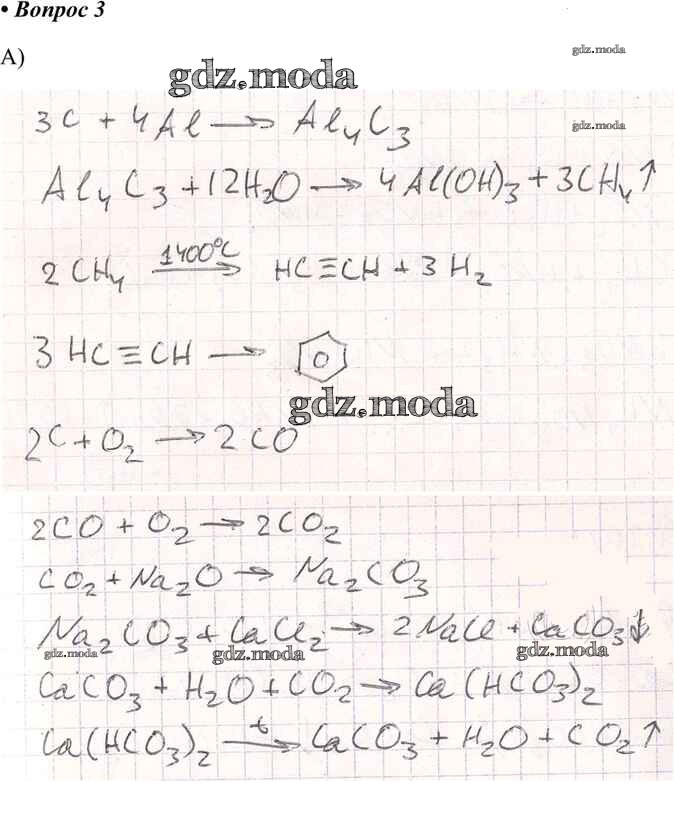 • Вопрос 3
А)
gdz.moda
gdz.moda
3C + 4Al → Al₄C₃
gdz.moda
Al₄C₃ + 12H₂O → 4Al(OH)₃ + 3CH₄↑
2CH₄ 1400°C → HC≡CH + 3H₂
3HC≡CH → ⌬
gdz.moda
2C + O₂ → 2CO
2CO + O₂ → 2CO₂
CO₂ + Na₂O → Na₂CO₃
Na₂CO₃ + CaCl₂ → 2NaCl + CaCO₃↓
gdz.moda gdz.moda gdz.moda
CaCO₃ + H₂O + CO₂ → Ca(HCO₃)₂
Ca(HCO₃)₂ t → CaCO₃ + H₂O + CO₂↑